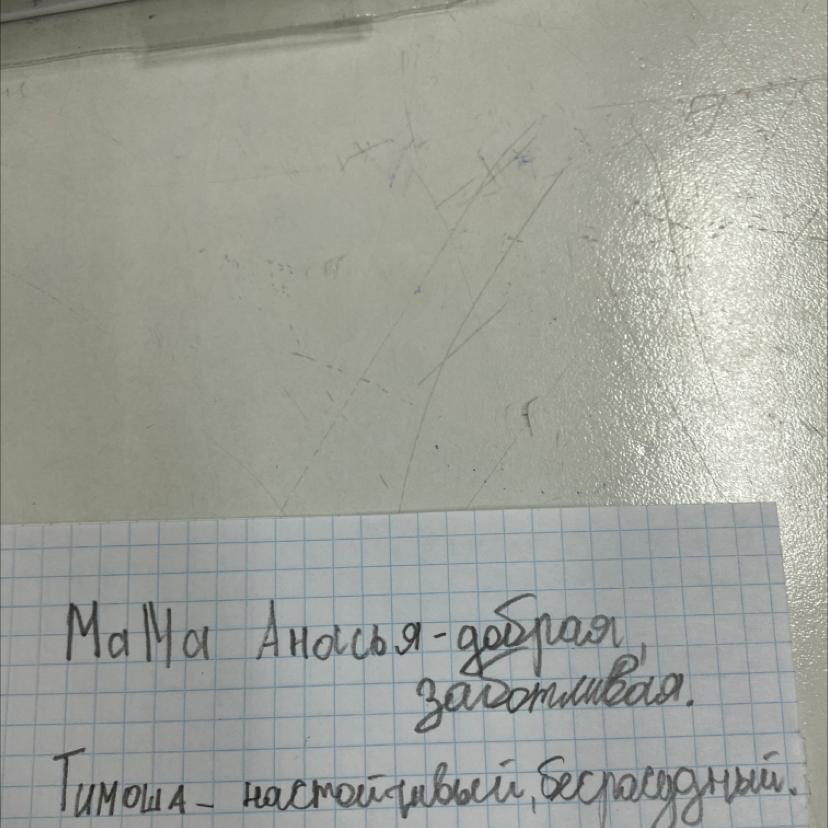 Мама Анасья - добрая,
заботливая.
Тимоша - настойчивый, бесрасудный.